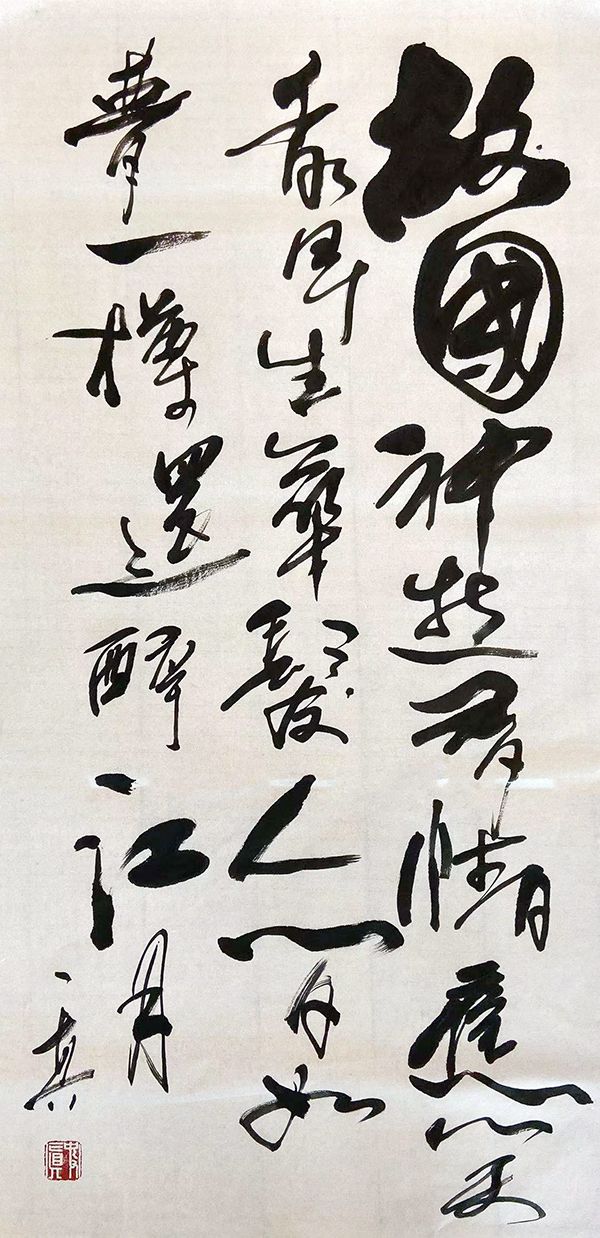 故國神遊多情應笑
我早生華髮人間如
夢一樽還酹江月
一真